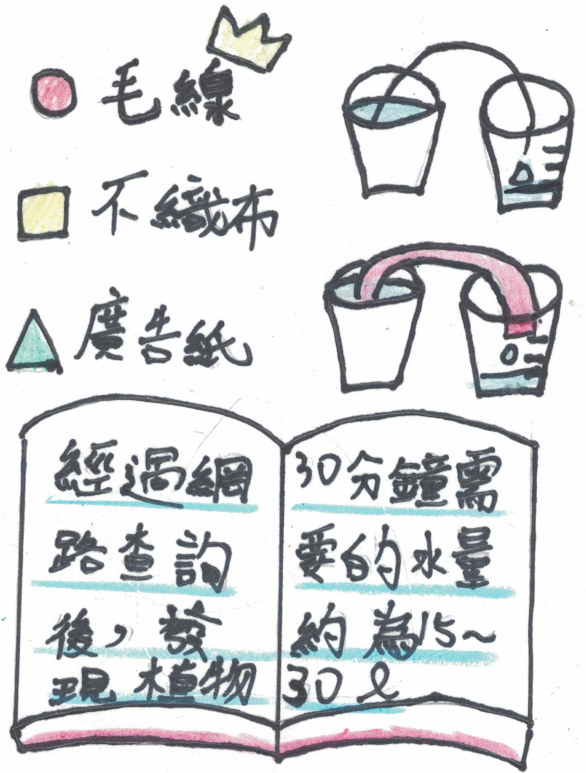 毛線
不織布
廣告紙
經過網
路查詢
後，發
現植物
30分鐘需
要的水量
約為15~
30ℓ